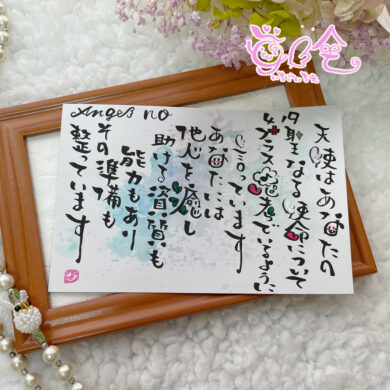 天使はあなたの
聖なる使命について
プラス思考でいるように
と言っています
あなたには
他人を癒し
助ける資質も
能力もあり
その準備も
整っています
Angel no